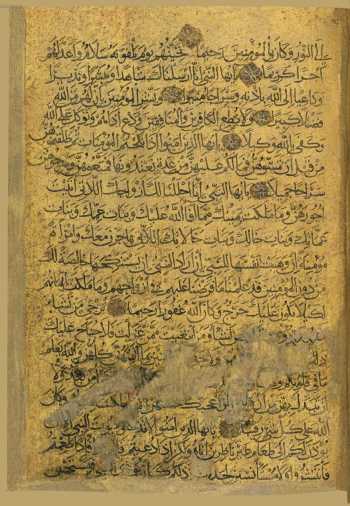 إلى النور وكان بالمؤمنين رحيما تحيتهم يوم يلقونه سلام وأعد لهم
أجرا كريما يا أيها النبي إنا أرسلناك شاهدا ومبشرا ونذيرا
وداعيا إلى الله بإذنه وسراجا منيرا وبشر المؤمنين بأن لهم من الله
فضلا كبيرا ولا تطع الكافرين والمنافقين ودع أذاهم وتوكل على الله
وكفى بالله وكيلا يا أيها الذين آمنوا إذا نكحتم المؤمنات ثم طلقتموهن
من قبل أن تمسوهن فما لكم عليهن من عدة تعتدونها فمتعوهن وسرحوهن
سراحا جميلا يا أيها النبي إنا أحللنا لك أزواجك اللاتي آتيت
أجورهن وما ملكت يمينك مما أفاء الله عليك وبنات عمك وبنات
عماتك وبنات خالك وبنات خالاتك اللاتي هاجرن معك وامرأة
مؤمنة إن وهبت نفسها للنبي إن أراد النبي أن يستنكحها خالصة لك
من دون المؤمنين قد علمنا ما فرضنا عليهم في أزواجهم وما ملكت أيمانهم
لكيلا يكون عليك حرج وكان الله غفورا رحيما ترجي من تشاء
من تشاء ومن ابتغيت ممن عزلت فلا جناح عليك
ذلك بما آتيتهن كلهن والله يعلم
ما في قلوبكم
أن تبدل بهن من أزواج ولو أعجبك حسنهن إلا ما ملكت يمينك وكان
الله على كل شيء رقيبا يا أيها الذين آمنوا لا تدخلوا بيوت النبي إلا أن
يؤذن لكم إلى طعام غير ناظرين إناه ولكن إذا دعيتم فادخلوا فإذا طعمتم
فانتشروا ولا مستأنسين لحديث إن ذلكم كان يؤذي النبي فيستحيي